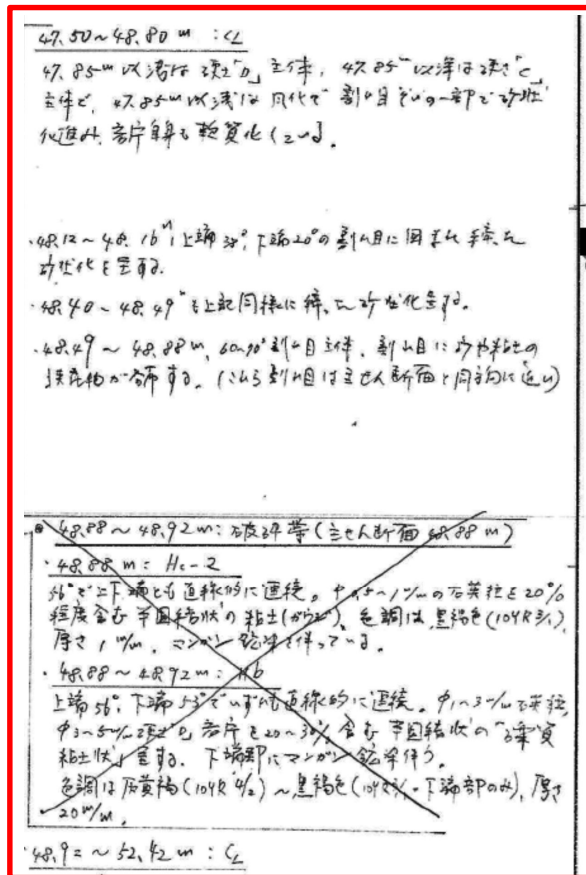 47.50～48.80 m : CL
47.85m以浅は硬さ「D」主体, 47.85m以深は硬さ「C」
主体で, 47.85m以浅は風化で割れ目沿いの一部で砂状
化進み, 岩片自身も軟質化している。
・48.12～48.16m, 上端38°, 下端20°の割れ目に囲まれ 砂状化を呈する。
・48.40～48.49mも上記同様に 砂状化呈する。
・48.49～48.88m, 60~70°割れ目主体, 割れ目に砂や粘土の
挟在物が分布する。(これら割れ目は主せん断面と同方向に近い)
48.88～48.92m : 破砕帯(主せん断面48.88m)
・48.88m : Hc-2
56°で上下端とも直線的に連続。φ0.5～1m/mの石英粒を20%
程度含む半固結状の粘土(ガウジ)。色調は黒褐色(10YR3/1),
厚さ1m/m。マンガン鉱染を伴っている。
・48.88～48.92m : Hb
上端56°, 下端53°でいずれも直線的に連続。φ1～3m/m石英粒,
φ3～5m/m硬さD岩片を20～30%含む半固結状の「礫質
粘土状」呈する。下端部にマンガン鉱染伴う。
色調は灰黄褐(10YR4/2)～黒褐色(10YR3/1・下端部のみ), 厚さ
20m/m。
・48.92～52.42m : CL